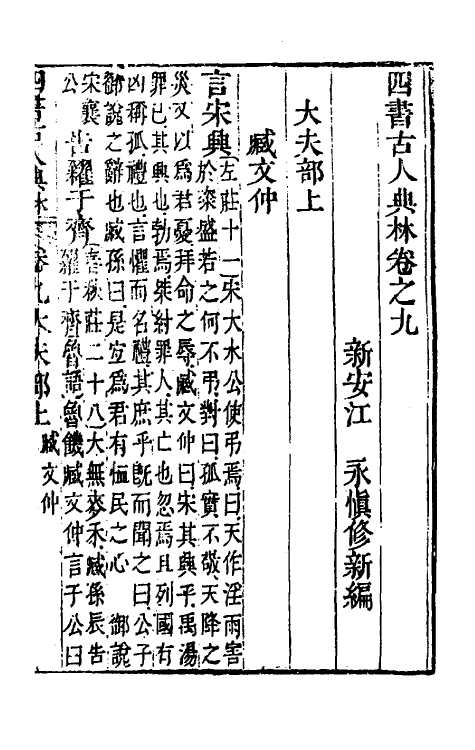 四書古人典林卷之九
新安江 永愼修新編
大夫部上
臧文仲
言宋興 左莊十一宋大水公使弔焉曰天作淫雨害
於粢盛若之何不弔對曰孤實不敬天降之
災又以爲君憂拜命之辱臧文仲曰宋其興乎禹湯
罪已其興也勃焉桀紂罪人其亡也忽焉且列國有
凶稱孤禮也言懼而名禮其庶乎旣而聞之曰公子
御說之辭也臧孫曰是宜爲君有恤民之心 御說
宋襄公
告糴于齊 春秋莊二十八大無麥禾臧孫辰告
糴于齊魯語魯饑臧文仲言于公曰
四書古人典林 卷九大夫部上 臧文仲